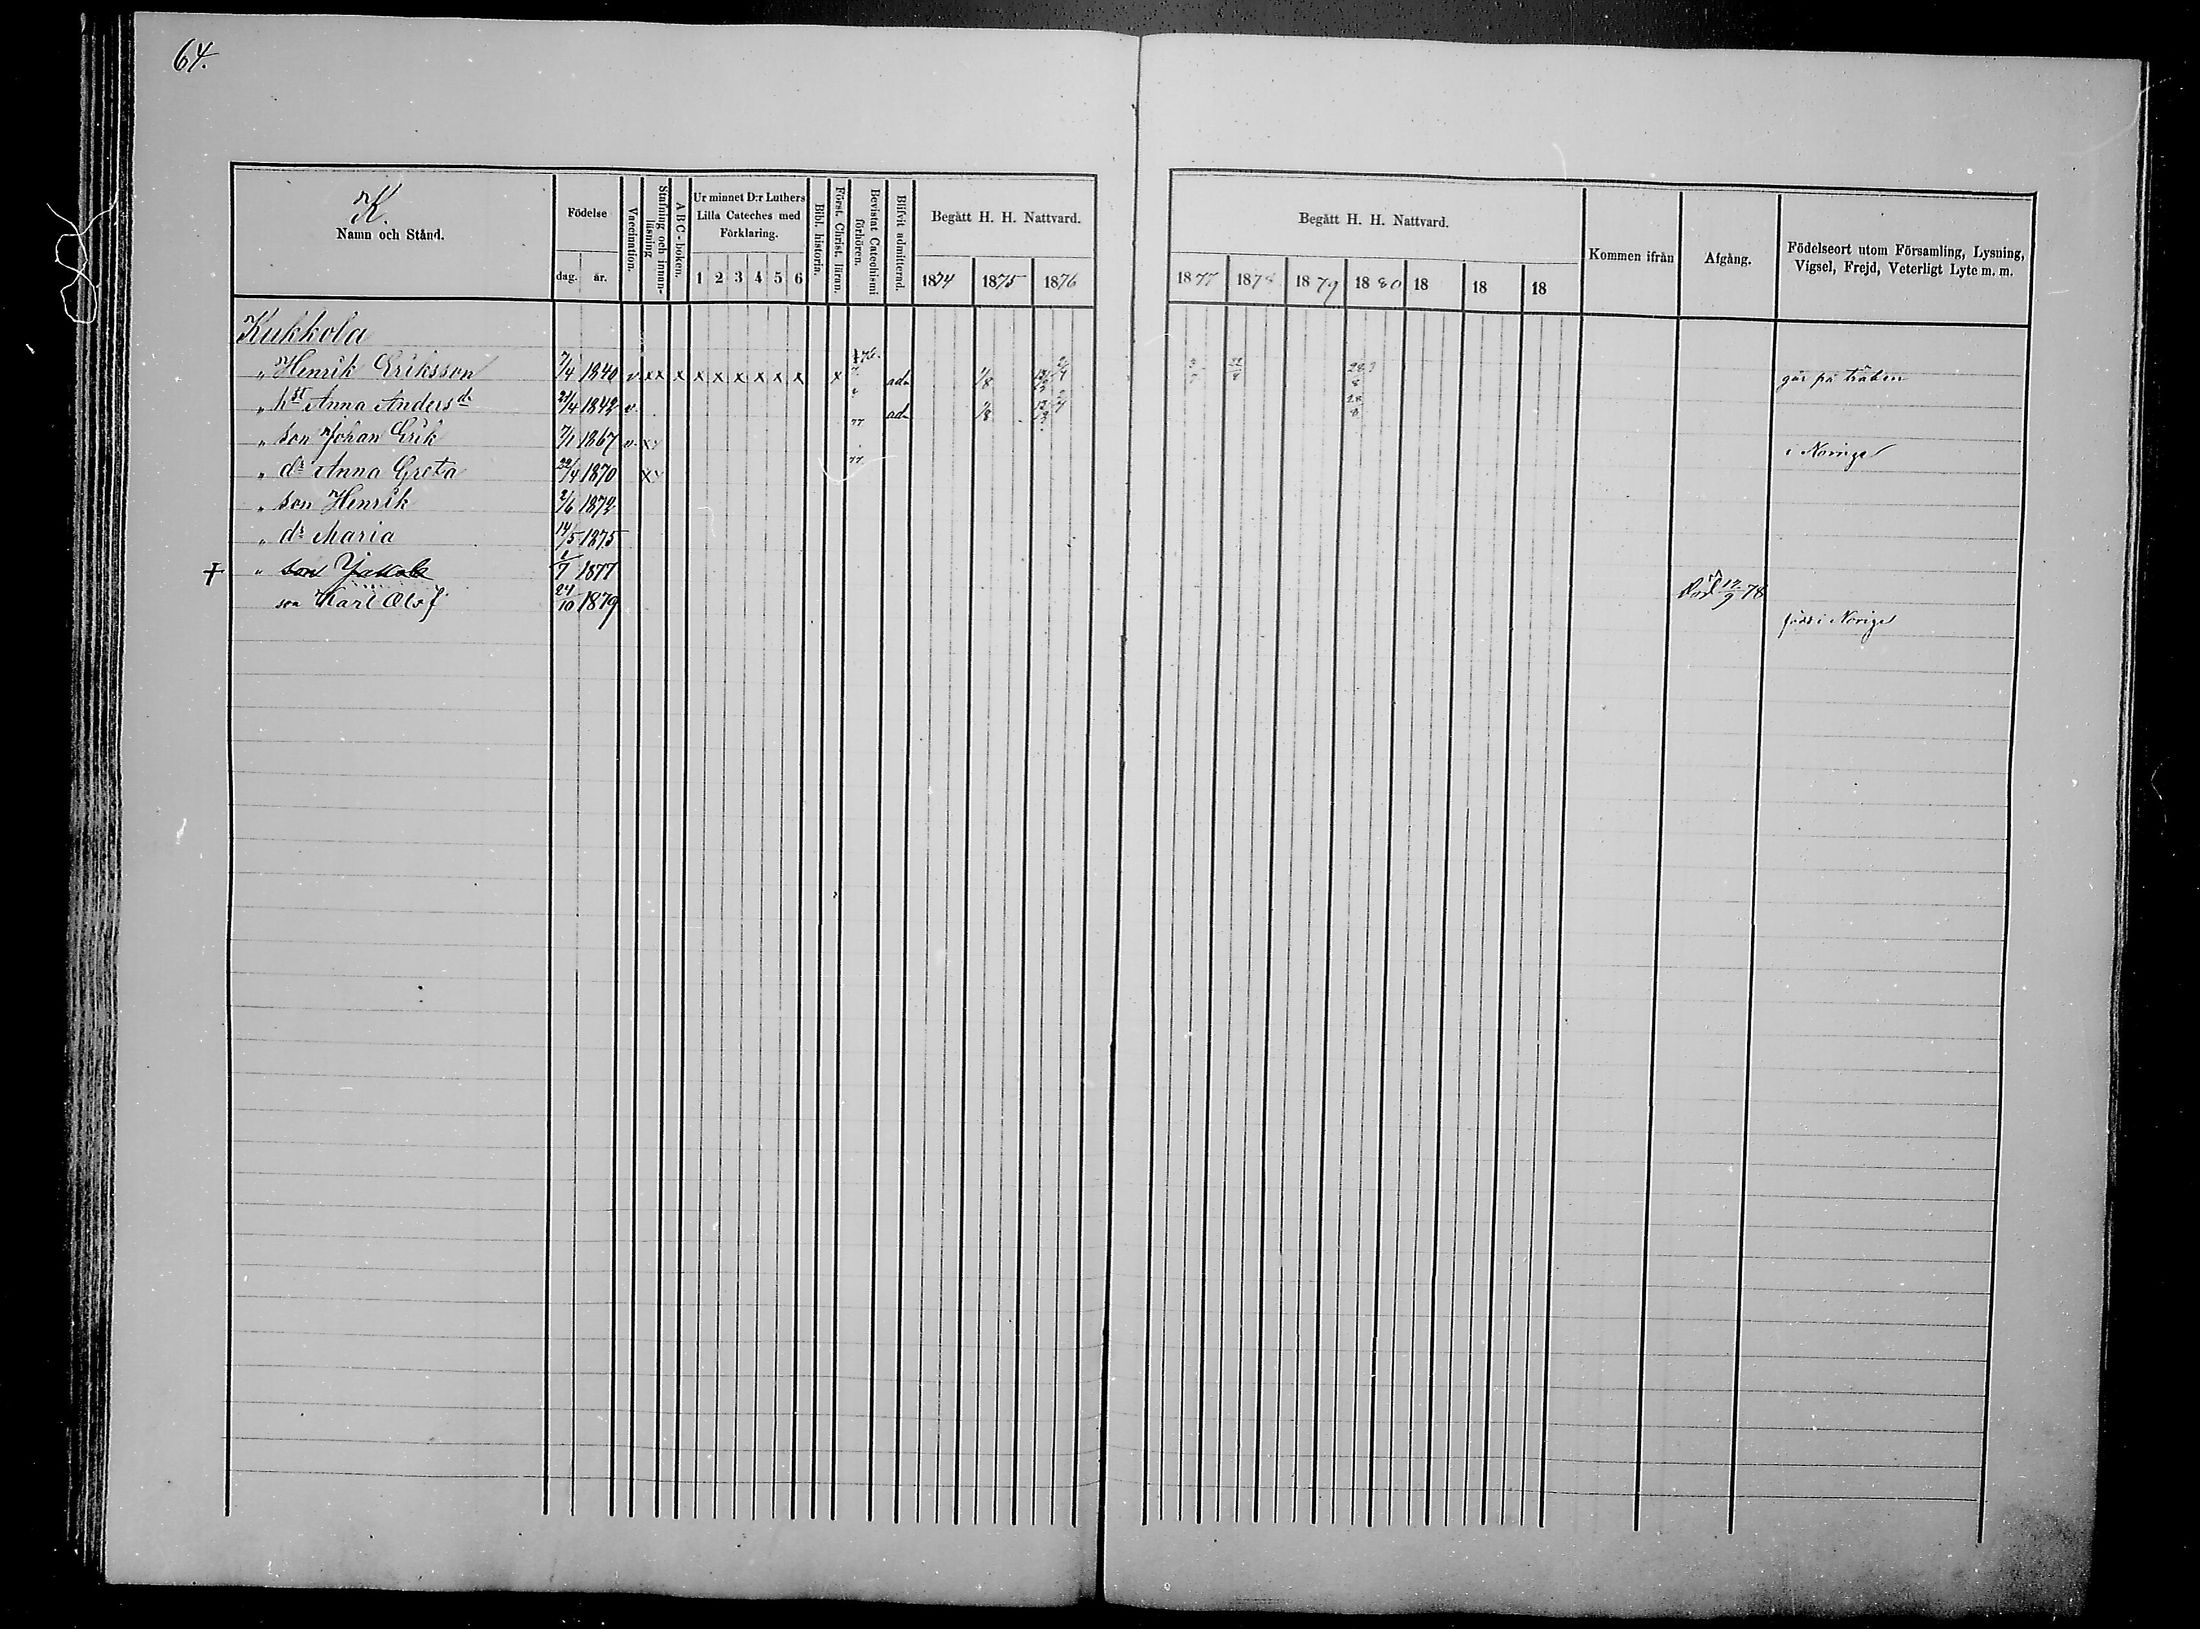 64.
K
Namn och Stånd.
Födelse
dag. år.
Vaccination.
Stafning och innanläsning
A B C - boken.
Ur minnet D:r Luthers Lilla Cateches med Förklaring.
1 2 3 4 5 6
Bibl. historia.
Först. Christ. läran.
Bevistat Catechismi förhören.
Blifvit admitterad.
Begått H. H. Nattvard.
1874 1875 1876
Begått H. H. Nattvard.
1877 1878 1879 1880 18 18 18
Kommen ifrån
Afgång.
Födelseort utom Församling, Lysning, Vigsel, Frejd, Veterligt Lyte m. m.
Kukkola
" Henrik Eriksson 7/4 1840 v x x x x x x x x x x ad 1/8
" hst Anna Andersdr 21/4 1842 v ad 1/8
" son Johan Erik 7/1 1867 v x 77 i Norige
" dr Anna Greta 22/4 1870 x 77
" son Henrik 2/6 1872
" dr Maria 14/5 1875
† " son Jakob 1/7 1877 Död 12/9 78
son Karl Olof 24/10 1879 född i Norige